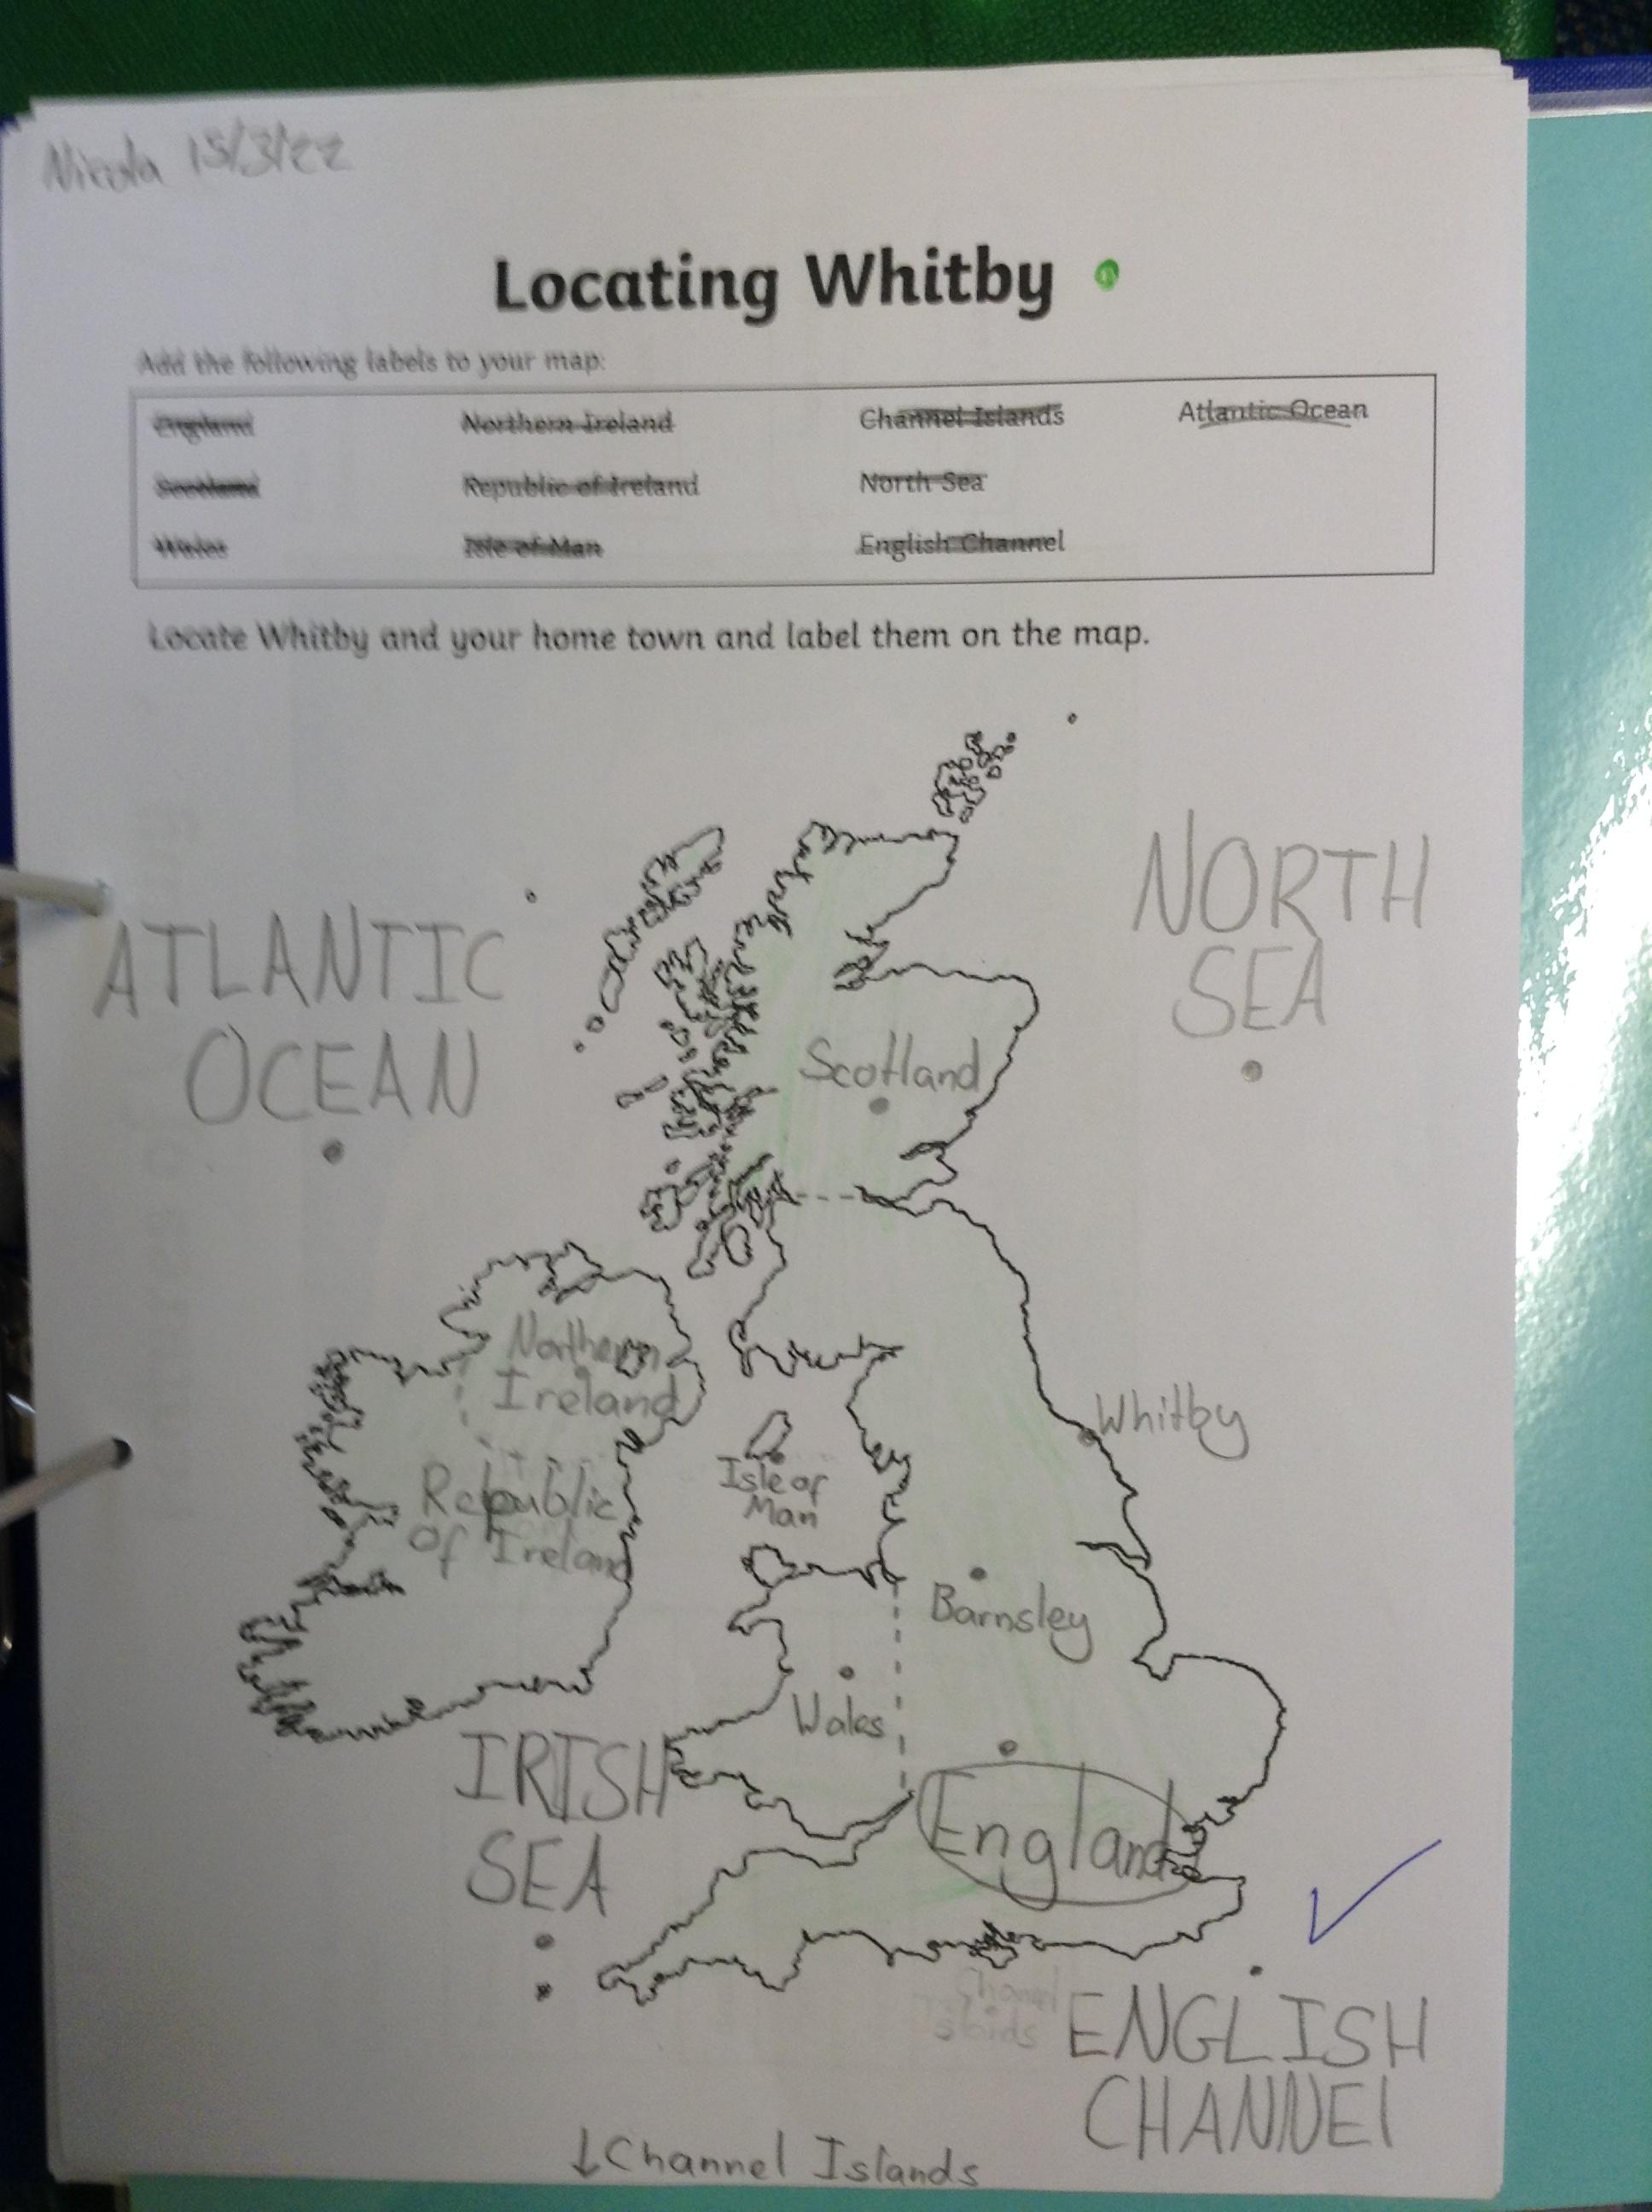 Nikola 15/3/22
Locating Whitby
Add the following labels to your map:
England Northern Ireland Channel Islands Atlantic Ocean
Scotland Republic of Ireland North Sea
Wales Isle of Man English Channel
Locate Whitby and your home town and label them on the map.
NORTH
SEA
ATLANTIC
OCEAN
Scotland
Northern
Ireland
Whitby
Republic
Of Ireland
Isle of
Man
Barnsley
Wales
IRISH
SEA
England
Channel
ENGLISH
CHANNEl
↓Channel Islands